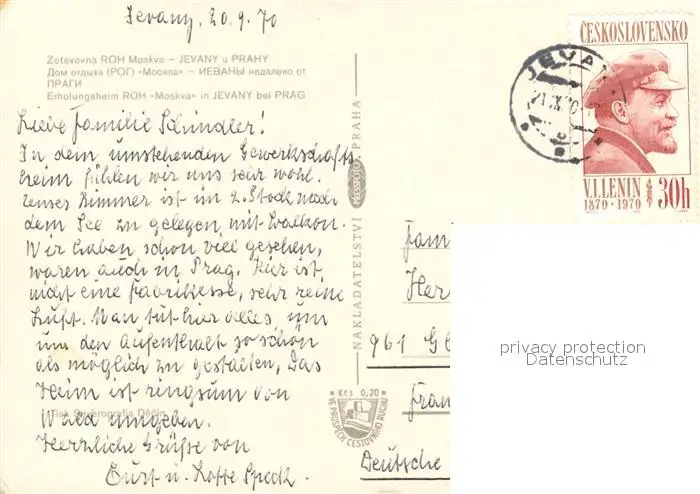 Jevany, 20.9.70
Zotavovna ROH Moskva – JEVANY u PRAHY
Дом отдыха (РОГ) «Москва» – ИЕВАНЫ недалеко от
ПРАГИ
Erholungsheim ROH «Moskva» in JEVANY bei PRAG
Liebe Familie Schindler!
In dem umstehenden Gewerkschafts
heim fühlen wir uns sehr wohl.
Unser Zimmer ist im 2. Stock nach
dem See zu gelegen, mit Balkon.
Wir haben schon viel gesehen,
waren auch in Prag. Hier ist
nicht eine Fabrikesse, sehr reine
Luft. Man tut hier alles, um
uns den Aufenthalt so schön
als möglich zu gestalten, Das
Heim ist ringsum von
Wald umgeben.
Herzliche Grüße von
Curt u. Lotte Speck.
Tisk Severografia Děčín
NAKLADATELSTVÍ PRESSFOTO PRAHA
Kčs 0,20
VE PROSPĚCH CESTOVNÍHO RUCHU
JEVA
ČESKOSLOVENSKO
V.I.LENIN
1870-1970
30h
Fam
Her
961 Gl
Fran
Deutsche
privacy protection
Datenschutz